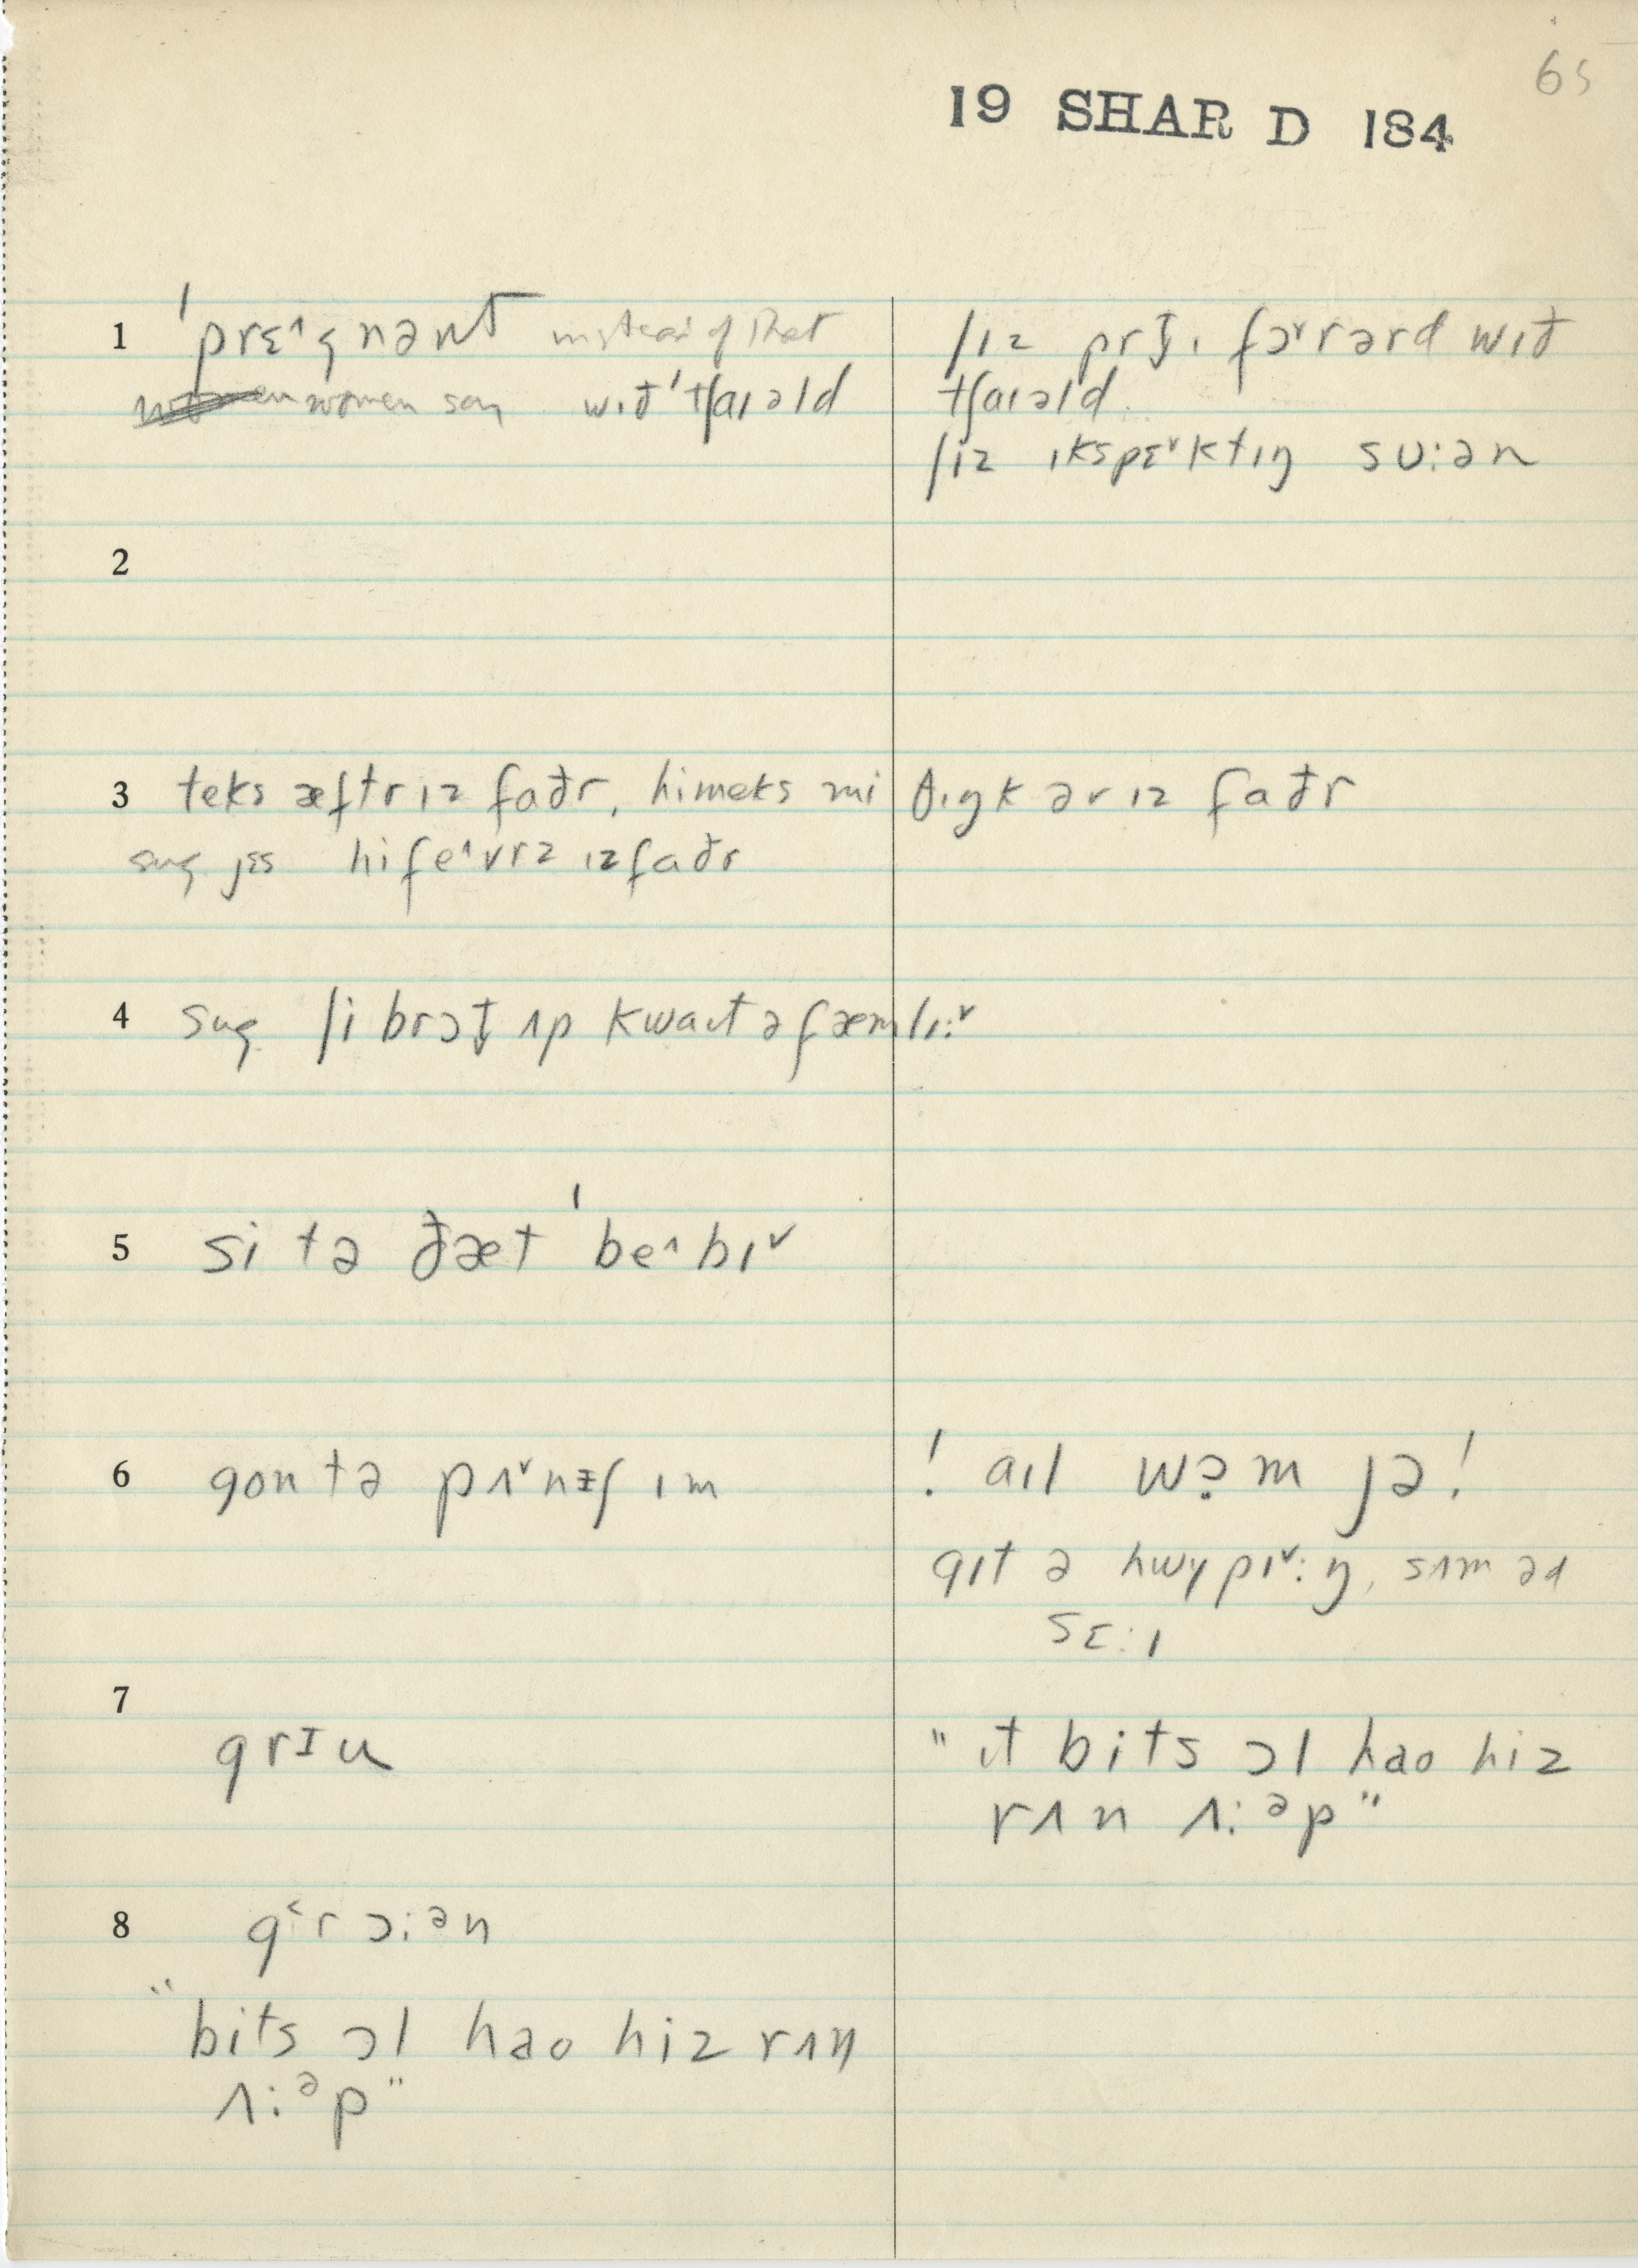 65
19 SHAR D 184
1 ˈprɛ˄gnənt instead of that
women say wɪð ˈtʃaɪəld
ʃɪz prɪt̬ɪ fɔ˅rərd wɪð
tʃaɪəld
ʃiz ɪkspɛ˅ktɪŋ sʊ:ən
2
3 teks æftr ɪz faðr, himeks mi θɪŋk əv ɪz faðr
sug jɛs hi fe˄vrz ɪz faðr
4 sug ʃi brɔt̬ ʌp kwaɪt ə fæmlɪ:˅
5 si tə ðæt ˈbe˄bɪ˅
6 gon tə pʌ˅nɪʃ ɪm
! aɪl wɔ̣m jə!
gɪt ə hwɪpɪ˅:ŋ, sʌm əd
sɛ:ɪ
7
grɪu
" ɪt bits ɔl hao hiz
rʌn ʌ:əp"
8 g˂rɔ:ən
"bits ɔl hao hiz rʌn
ʌ:əp"